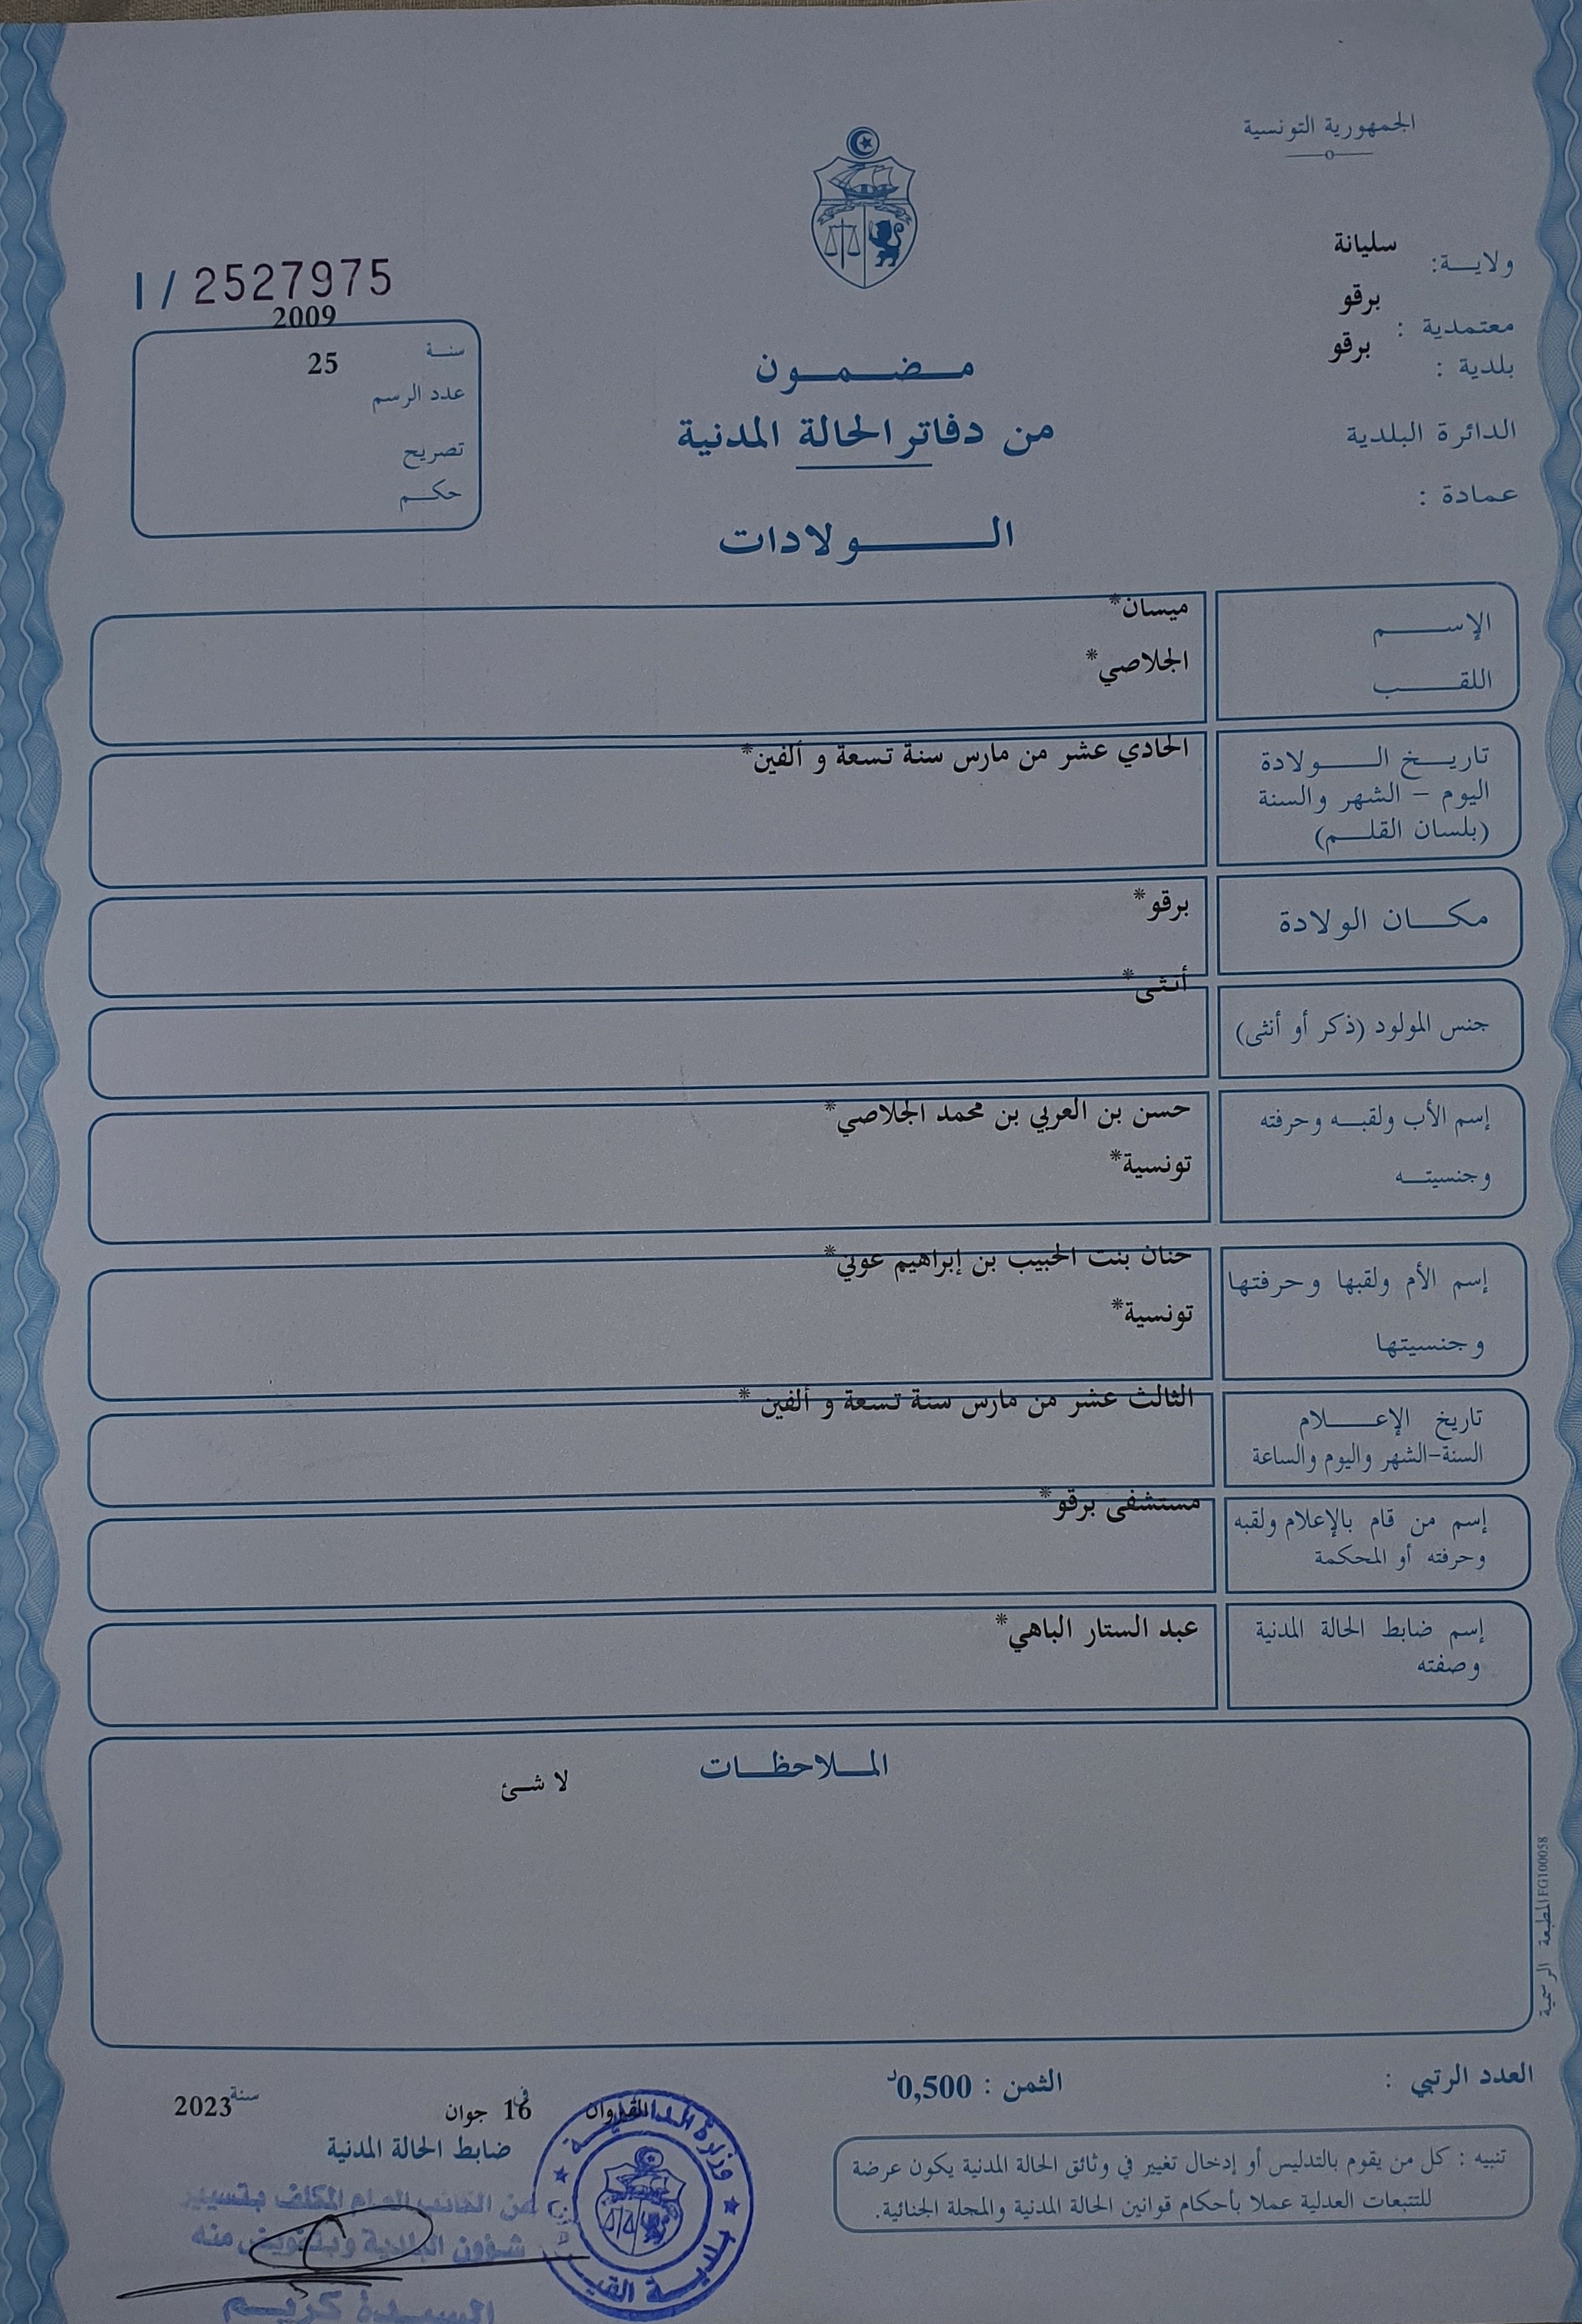 الجمهورية التونسية
ولايـــة: سليانة
معتمدية : برقو
بلدية : برقو
الدائرة البلدية
عمادة :
I / 2527975
سنــة 2009
عدد الرسم 25
تصريح
حكــم
مــضــمــون
من دفاتر الحالة المدنية
الــــولادات
الإســــم ميسان*
اللقــــب الجلاصي*
تاريــخ الــــولادة الحادي عشر من مارس سنة تسعة و ألفين*
اليوم – الشهر والسنة
(بلسان القلــم)
مكــان الولادة برقو*
جنس المولود (ذكر أو أنثى) أنثى*
إسم الأب ولقبــه وحرفته حسن بن العربي بن محمد الجلاصي*
وجنسيتــه تونسية*
إسم الأم ولقبها وحرفتها حنان بنت الحبيب بن إبراهيم عوني*
وجنسيتها تونسية*
تاريخ الإعــــلام الثالث عشر من مارس سنة تسعة و ألفين *
السنة-الشهر واليوم والساعة
إسم من قام بالإعلام ولقبه مستشفى برقو*
وحرفته أو المحكمة
إسم ضابط الحالة المدنية عبد الستار الباهي*
وصفته
المــلاحظــات
لا شئ
المطبعة الرسمية FG100058
العدد الرتبي :
الثمن : 0,500د
القيروان في 16 جوان سنة 2023
ضابط الحالة المدنية
تنبيه : كل من يقوم بالتدليس أو إدخال تغيير في وثائق الحالة المدنية يكون عرضة
للتتبعات العدلية عملا بأحكام قوانين الحالة المدنية والمجلة الجنائية.
وزارة الداخلية
عن الكاتب العام المكلف بتسيير
شؤون البلدية وبتفويض منه
السيدة كريم